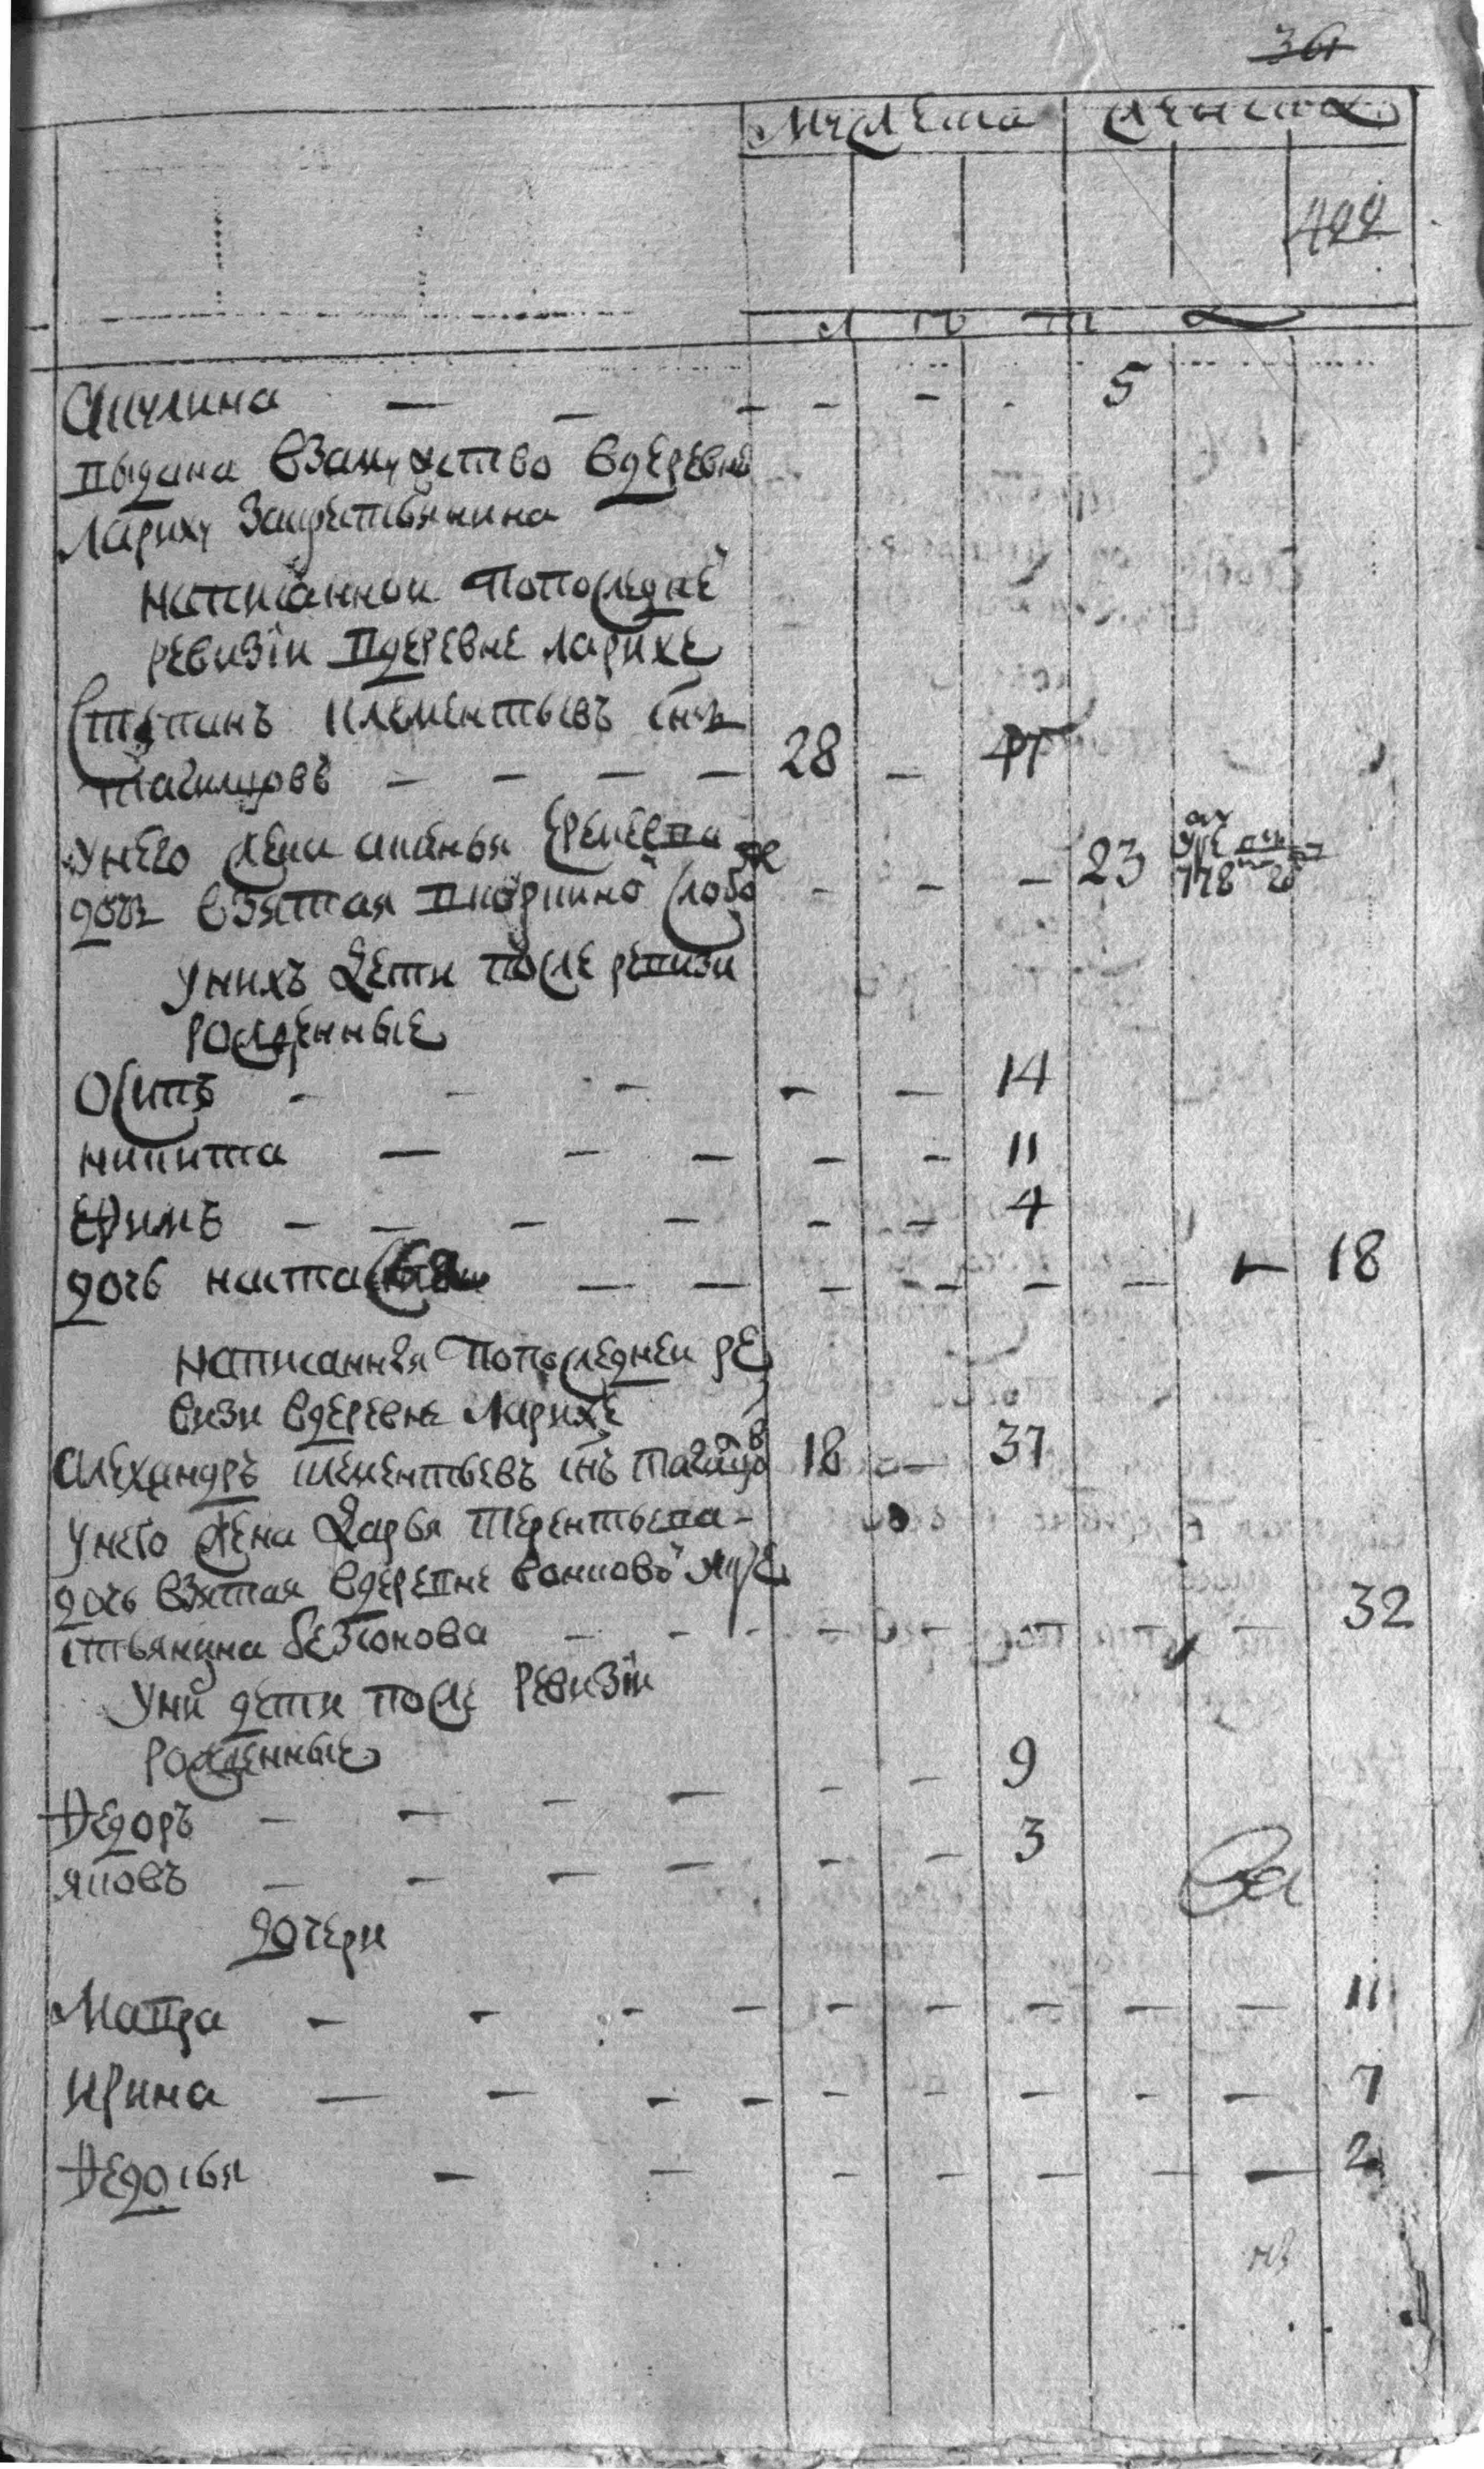 36
Мужеска Женска
422
Акулина — — — — — — 5
выдана взамужство вдеревню
Лариху закрестьянина
написанной попоследне
ревизiи вдеревне ларихе
Степанъ клементьевъ снъ
тагилцовъ — — — — 28 — 47
унего жена Еремеева
дочь взятая слобо — — — 23 778
унихъ дети после ревизи
рожденные
Осипъ — — — — — 14
никита — — — — — 11
Ефимъ — — — — — — 4
дочь настасья — — — — — — — 18
написанныя попоследней ре
визи вдеревне Ларихе
алеѯандръ клементьевъ снъ 18 — 37
унего жена Дарья терентьева
дочь взятая вдеревне кре
стьянина — — — — — — — 32
уни дети после ревизiи
рожденные
Ѳедоръ — — — — — — 9
яковъ — — — — — — 3
дочери
Мавра — — — — — — — — — 11
Ирина — — — — — — — — — 7
Ѳедосья — — — — — — — 2